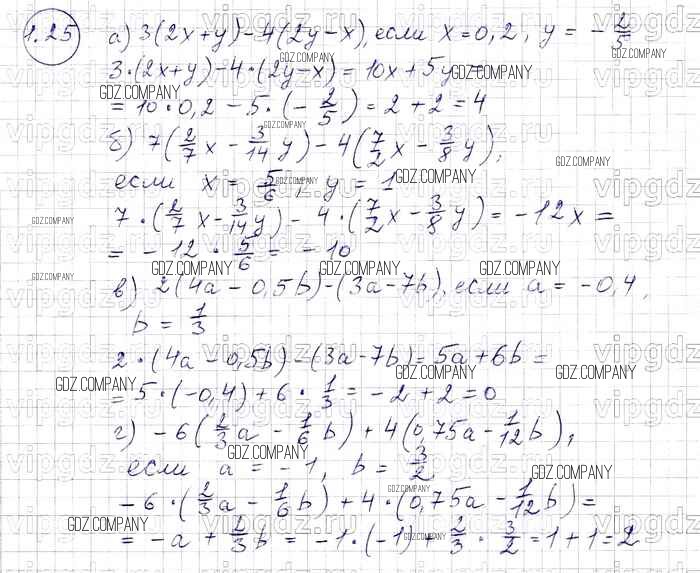 1.25 а) 3(2x+y)-4(2y-x), если x=0,2, y = -2/5
3·(2x+y)-4·(2y-x) = 10x+5y
= 10·0,2 - 5·(-2/5) = 2+2 = 4
б) 7(2/7x - 3/14y) - 4(7/2x - 3/8y),
если x = 5/6, y = 1
7·(2/7x - 3/14y) - 4·(7/2x - 3/8y) = -12x =
= -12·5/6 = -10
в) 2(4a - 0,5b) - (3a-7b), если a = -0,4,
b = 1/3
2·(4a - 0,5b) - (3a-7b) = 5a + 6b =
= 5·(-0,4) + 6·1/3 = -2+2 = 0
г) -6(2/3a - 1/6b) + 4(0,75a - 1/12b),
если a = -1, b = 3/2
-6·(2/3a - 1/6b) + 4·(0,75a - 1/12b) =
= -a + 2/3b = -1·(-1) + 2/3·3/2 = 1+1 = 2